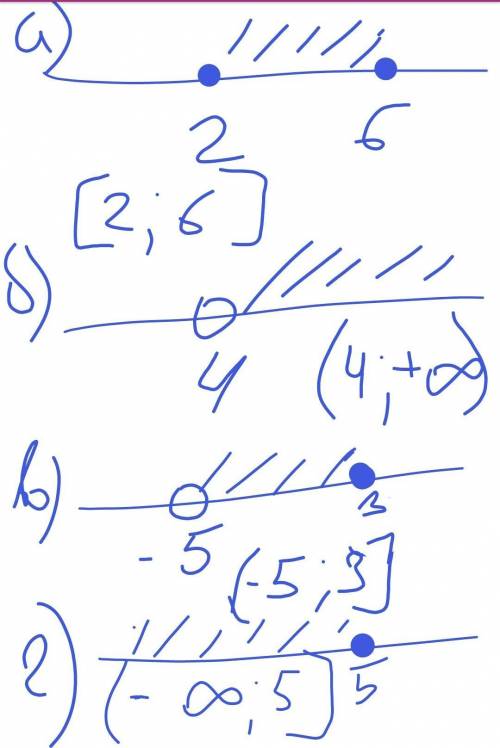 а)
2 6
[2; 6]
б)
4 (4; +∞)
в)
-5 3
(-5; 3]
г)
(-∞; 5] 5